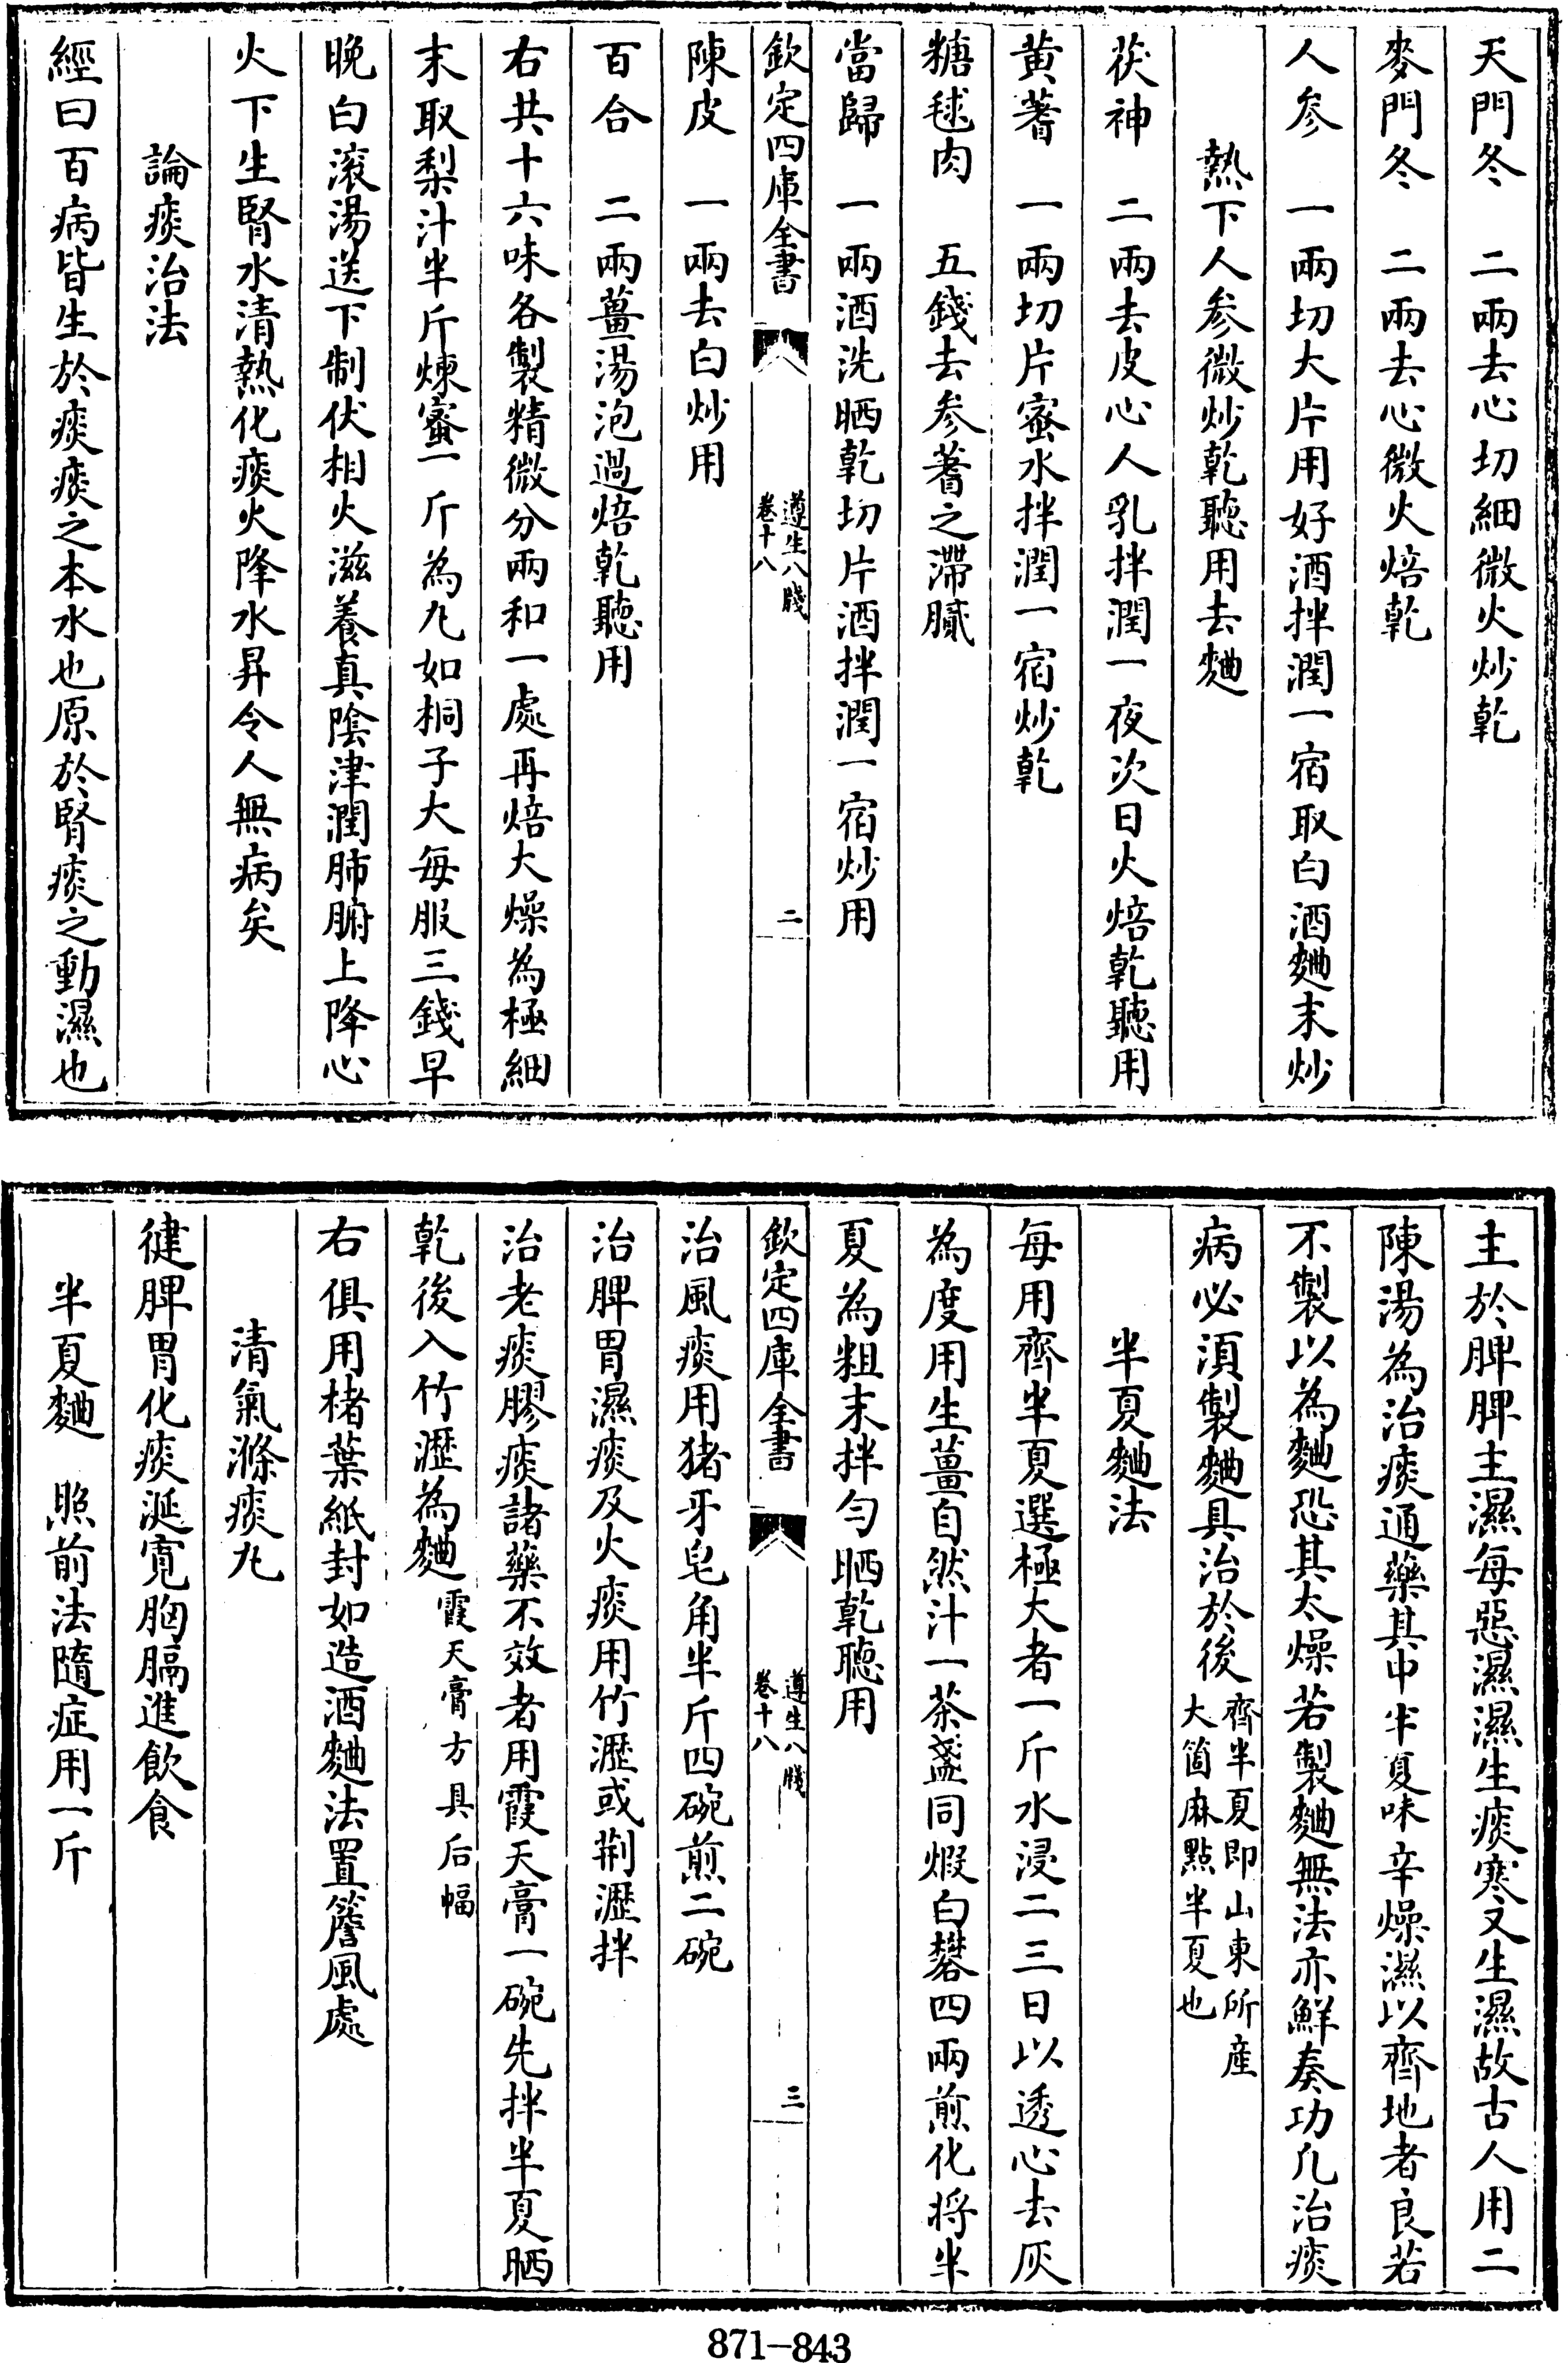 天門冬　二兩去心切細微火炒乾
麥門冬　二兩去心微火焙乾
人參　一兩切大片用好酒拌潤一宿取白酒麯末炒
熱下人參微炒乾聽用去麯
茯神　二兩去皮心人乳拌潤一夜次日火焙乾聽用
黃蓍　一兩切片蜜水拌潤一宿炒乾
糖毬肉　五錢去參蓍之滯膩
當歸　一兩酒洗晒乾切片酒拌潤一宿炒用
欽定四庫全書　遵生八牋卷十八　二
陳皮　一兩去白炒用
百合　二兩薑湯泡過焙乾聽用
右共十六味各製精微分兩和一處再焙大燥為極細
末取梨汁半斤煉蜜一斤為丸如桐子大每服三錢早
晚白滚湯送下制伏相火滋養真陰津潤肺腑上降心
火下生腎水清熱化痰火降水昇令人無病矣
論痰治法
經曰百病皆生於痰痰之本水也原於腎痰之動濕也
主於脾脾主濕每惡濕濕生痰寒又生濕故古人用二
陳湯為治痰通藥其中半夏味辛燥濕以齊地者良若
不製以為麯恐其太燥若製麯無法亦鮮奏功凡治痰
病必須製麯具治於後齊半夏即山東所産大箇麻點半夏也
半夏麯法
每用齊半夏選極大者一斤水浸二三日以透心去灰
為度用生薑自然汁一茶盞同煆白礬四兩煎化將半
夏為粗末拌勻晒乾聴用
欽定四庫全書　遵生八牋卷十八　三
治風痰用猪牙皂角半斤四碗煎二碗
治脾胃濕痰及火痰用竹瀝或荆瀝拌
治老痰膠痰諸藥不效者用霞天膏一碗先拌半夏晒
乾後入竹瀝為麯霞天膏方具后幅
右俱用楮葉紙封如造酒麯法置簷風處
清氣滌痰丸
健脾胃化痰涎寛胸膈進飲食
半夏麯　照前法隨症用一斤
871-843